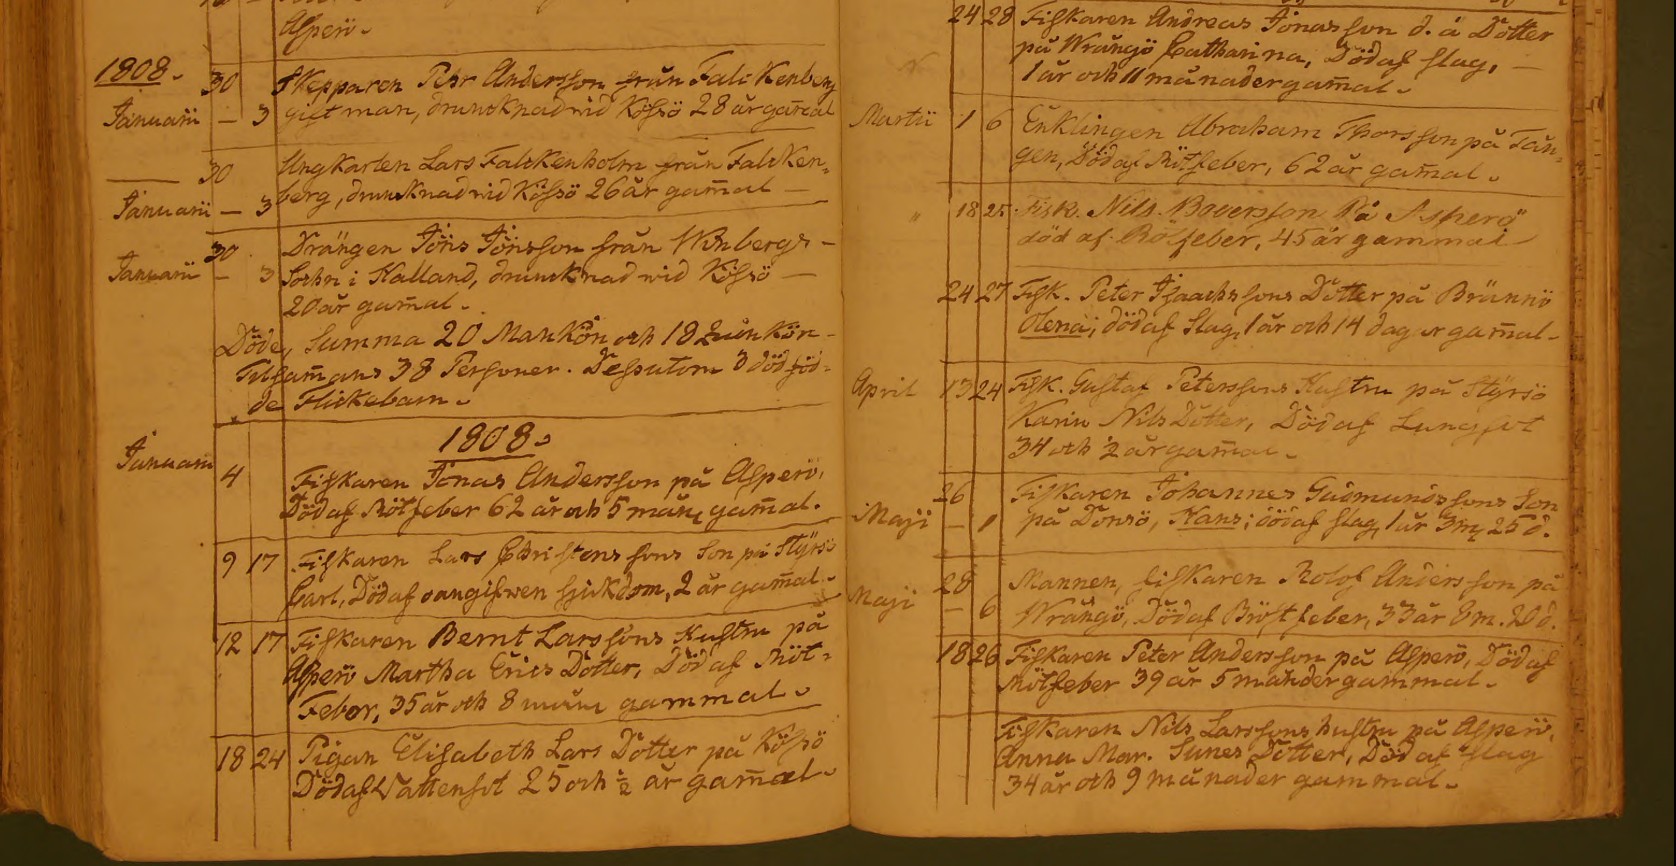 Asperö.
1808. 30 Skepparen Pehr Andersson från Falckenberg
Januarii — 3 gift man, druncknad wid Kössö 28 år gam̄al
— 30 Ungkarlen Lars Falckenholm från Falcken-
Januarii — 3 berg, druncknad wid Kössö 26 år gam̄al —
30 Drängen Jöns Jönsson från Winbergs-
Januarii — 3 Sochn i Halland, druncknad wid Kössö —
20 år gam̄al.
Döde, Summa 20 Mankön och 18 Quinkön-
Tilsam̄ans 38 Personer. Dessutom 3 dödföd-
de Flickebarn.
1808.
Januarii 4 Fiskaren Jonas Andersson på Asperö,
Död af Rötfeber 62 år och 5 mån gam̄al.
9 17 Fiskaren Lars Christenssons Son på Styrsö
Carl, Död af oangifwen sjukdom, 2 år gam̄al.
12 17 Fiskaren Bernt Larssons Hustru på
Asperö Martha Erics Dotter, Död af Röt-
Feber, 35 år och 8 mån gammal.
18 24 Pigan Elisabeth Lars Dotter på Kössö
Död af Wattensot 25 och ½ år gam̄al.
24 28 Fiskaren Andreas Jonasson d. ä Dotter
på Wrångö Catharina, Död af slag, —
1 år och 11 månader gam̄al.
Martii 1 6 Enklingen Abraham Thorsson på Tån-
gen, Död af Rötfeber, 62 år gam̄al.
" 18 25 Fisk. Nils Börjesson På Asperö
död af Rötfeber, 45 år gammal
24 27 Fisk. Peter Isaachssons Dotter på Brännö
Olena; död af Slag, 1 år och 14 dagar gam̄al.
April 13 24 Fisk. Gustaf Peterssons Hustru på Styrsö
Karin Nils Dotter, Död af Lungsot
34 och ½ år gam̄al.
26 Fiskaren Johannes Gudmundssons Son
Maji — 1 på Donsö, Hans; död af slag, 1 år 3 m 25 d.
28 Mannen, fiskaren Rolof Andersson på
Maji — 6 Wrångö, Död af Bröstfeber, 33 år 8 m. 20 d.
18 26 Fiskaren Peter Andersson på Asperö, Död af
Rötfeber 39 år 5 månader gammal.
Fiskaren Nils Larssons hustru på Asperö,
Anna Mar. Sunes Dotter, Död af slag
34 år och 9 månader gammal.